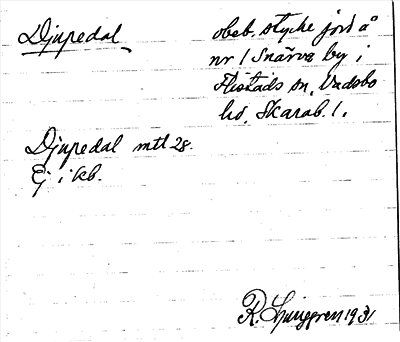 Djupedal
obeb. stycke jord å
nr 1 Snärve by i
Flistads sn, Vadsbo
hd, Skarab. l.
Djupedal mtl 28.
Ej i kb.
R. Ljunggren 1931